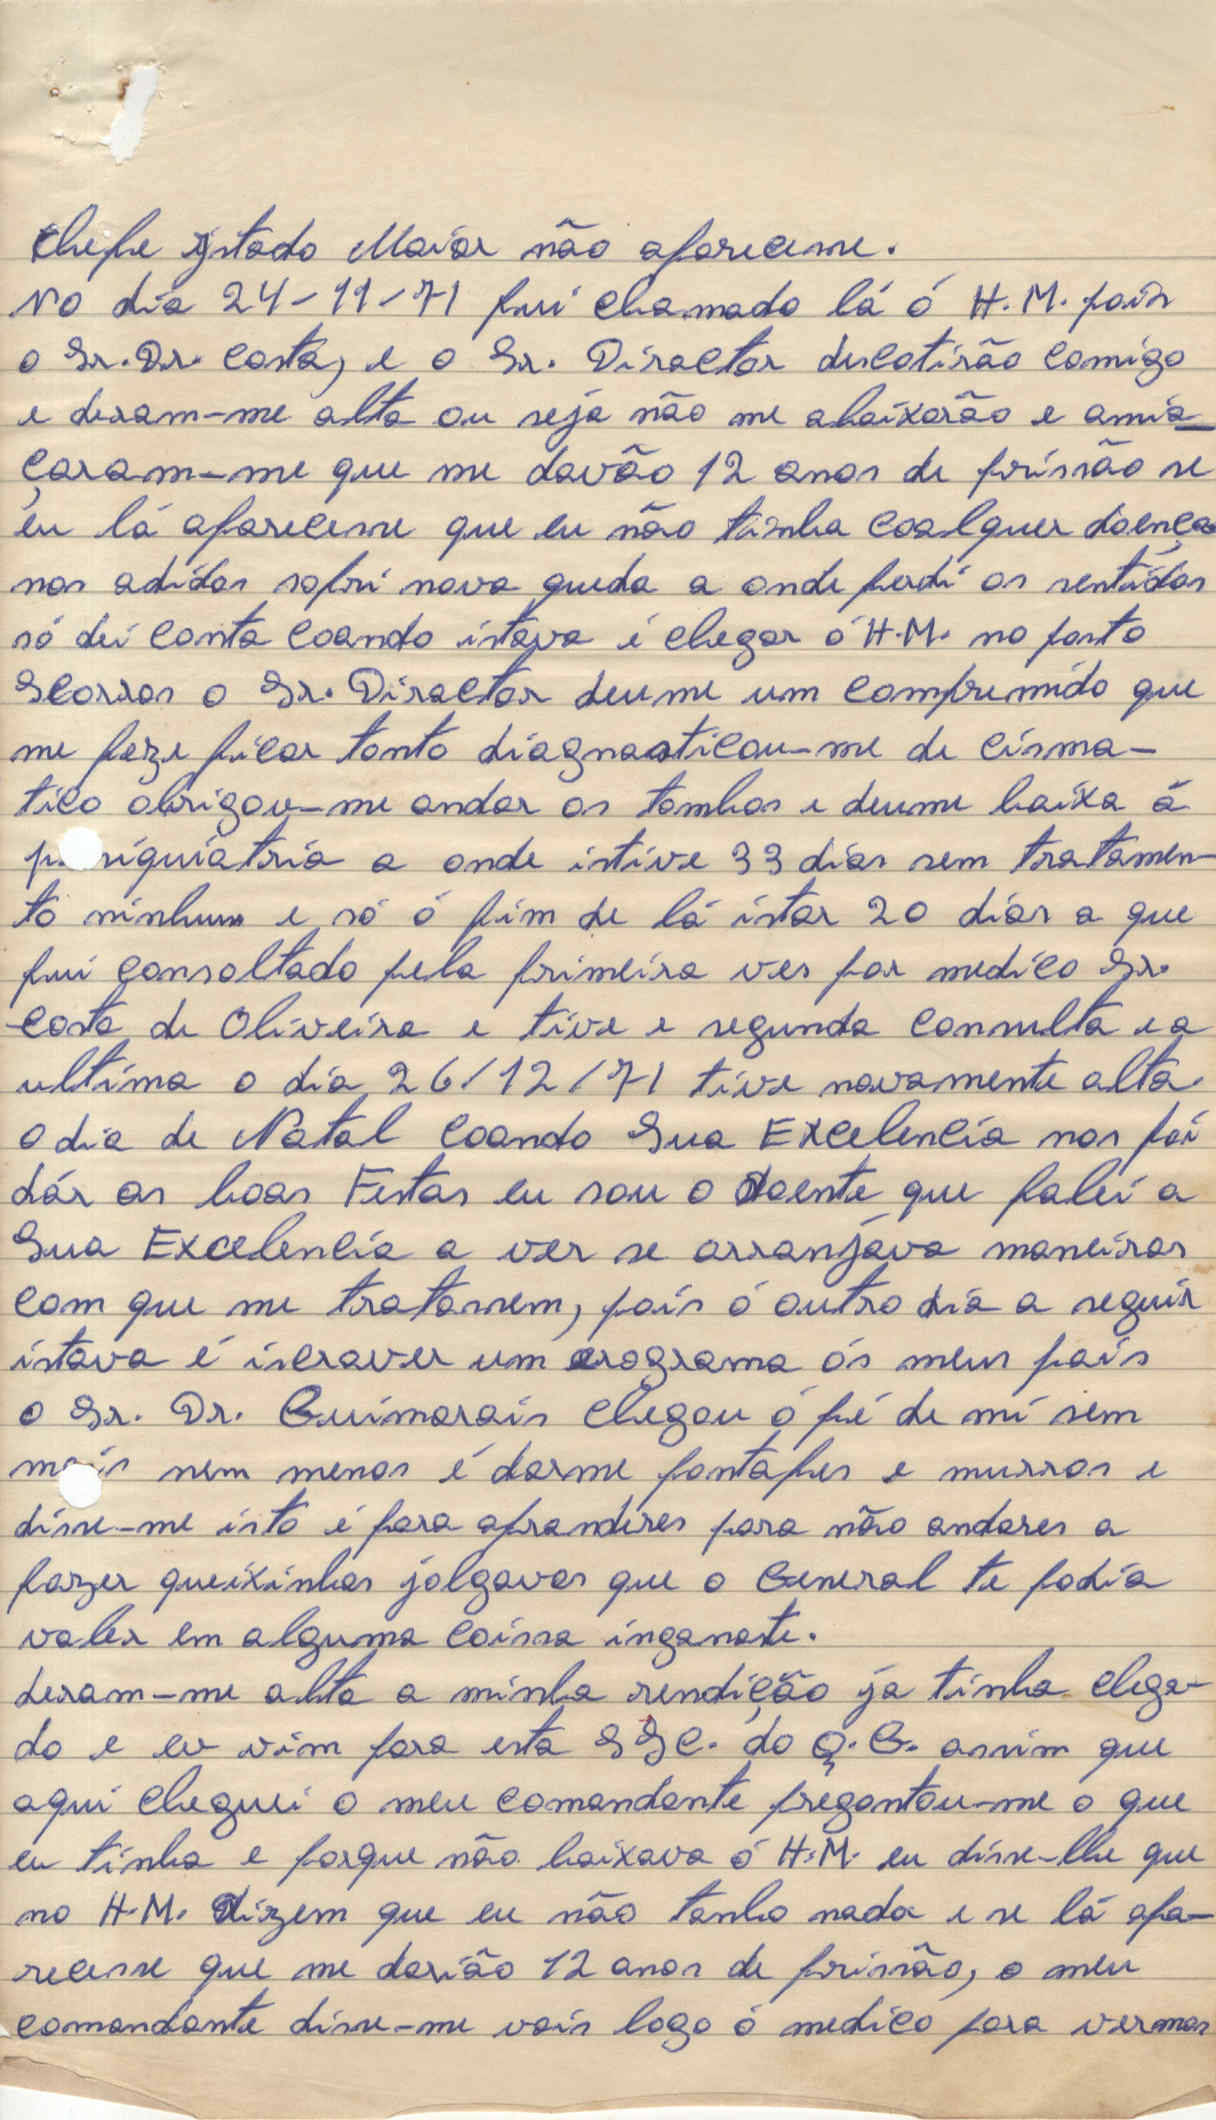 chefe istado Maiór não aparecesse.
No dia 24-11-71 fui chamado lá ó H.M. pois
o Sr. Dr. Costa, e o Sr. Diractor descotirão comigo
e deram-me alta ou seja não me abaixarão e amia
çaram-me que me davão 12 anos de prissão se
eu lá aparecesse que eu não tinha coalquer doença
nos adidos sofri nova queda a onde perdi os sentidos
só dei conta coando istava é chegar ó H.M. no posto
Scorros o Sr. Diractor deume um comprumido que
me faze ficar tonto diagnasticou-me de cisma-
tico obrigou-me andar os tombos e deume baixa á
psiquiatria a onde istive 33 dias sem tratamen-
to ninhum e só ó fim de lá istar 20 dias a que
fui consoltado pela primeira ves por medico Sr.
Costa de Oliveira e tive e segunda consulta e a
ultima o dia 26/12/71 tive novamente alta.
O dia de Natal coando Sua Excelencia nos foi
dár as boas Festas eu sou o doente que falei a
Sua Excelencia a ver se arranjáva maneiras
com que me tratassem, pois ó outro dia a seguir
istava é iscraver um erograma ós meus pais
o Sr. Dr. Guimarais chegou ó pé de mi sem
mais nem menos é darme pontapes e murros e
disse-me isto é para apranderes para não andares a
fazer queixinhas jolgavas que o General te podia
valer em alguma coissa inganaste.
deram-me alta a minha rendição já tinha chega-
do e eu vim para esta SSC. do Q.G. assim que
aqui cheguei o meu comandante pregontou-me o que
eu tinha e porque não baixava ó H.M. eu disse-lhe que
no H.M. dizem que eu não tanho nada e se lá apa-
recesse que me darião 12 anos de prissão, o meu
comandante disse-me vais logo ó medico para vermos